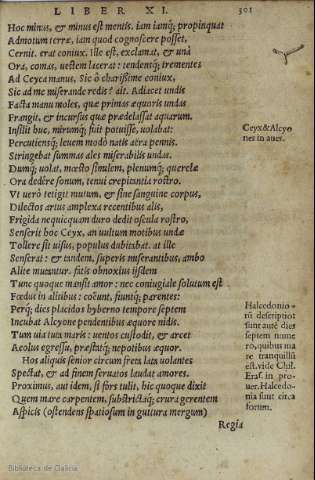 LIBER XI. 301
Hoc minus, & minus est mentis. iam iamq́; propinquat
Admotum terræ, iam quod cognoscere posset,
Cernit. erat coniux, ille est, exclamat, & unà
Ora, comas, uestem lacerat: tendentq́; trementes
Ad Ceyca manus, Sic ô charissime coniux,
Sic ad me miserande redis? ait. Adiacet undis
Facta manu moles, quæ primas æquoris undas
Frangit, & incursus quæ prædelassat aquarum.
Insilit huc, mirumq́; fuit potuisse, uolabat:
Percutiensq́; leuem modò natis aëra pennis.
Stringebat summas ales miserabilis undas.
Dumq́; uolat, mœsto similem, plenumq́; querelæ
Ora dedêre sonum, tenui crepitantia rostro.
Vt uerò tetigit mutum, & sine sanguine corpus,
Dilectos artus amplexa recentibus alis,
Frigida nequicquam duro dedit oscula rostro,
Senserit hoc Cëyx, an uultum motibus undæ
Tollere sit uisus, populus dubitabat. at ille
Senserat: & tandem, superis miserantibus, ambo
Alite mutantur. fatis obnoxius ijsdem
Tunc quoque mansit amor: nec coniugiale solutum est
Fœdus in alitibus: coëunt, fiuntq́; parentes:
Perq́; dies placidos hyberno tempore septem
Incubat Alcyone pendentibus æquore nidis.
Tum uia tuta maris: uentos custodit, & arcet
Aeolus egressu, præstatq́; nepotibus æquor.
Hos aliquis senior circum freta lata uolantes
Spectat, & ad finem seruatos laudat amores.
Proximus, aut idem, si fors tulit, hic quoque dixit
Quem mare carpentem, substrictaq́; crura gerentem
Aspicis (ostendens spatiosum in guttura mergum)
Regia
Ceyx & Alcyo
nes in aues.
Halcedonio-
rũ descriptio:
sunt autẽ dies
septem nume
ro, quibus ma
re tranquillũ
est. uide Chil.
Eras. in pro-
uer. Halcedo-
nia sunt circa
forum.
Biblioteca de Galicia